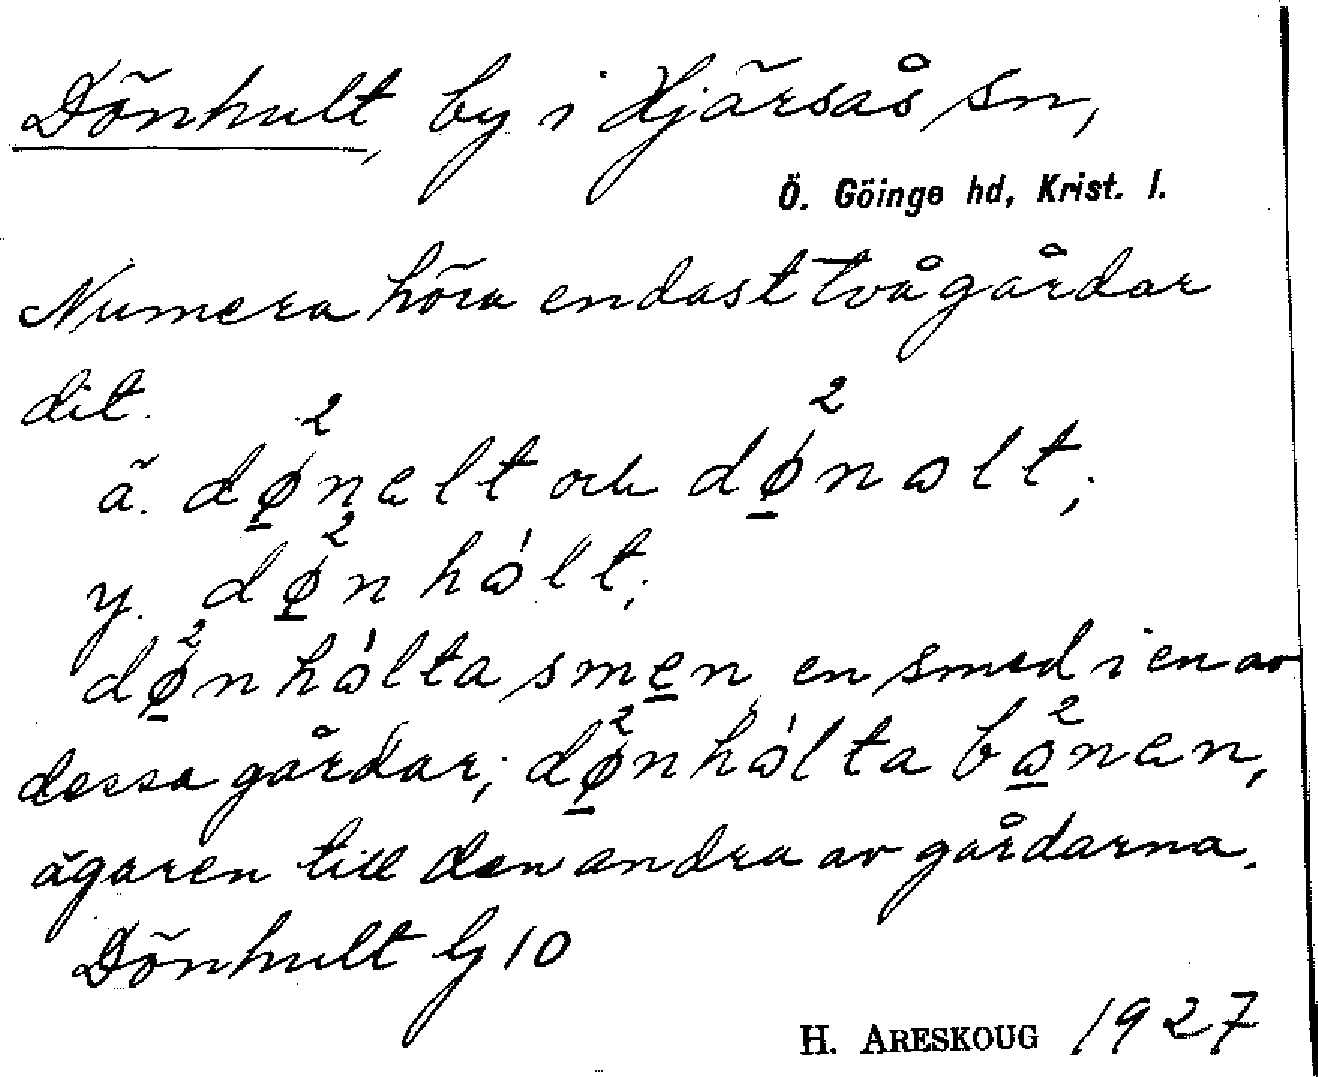 Dönhult, by i Hjärsås sn,
Ö. Göinge hd, Krist. l.
Numera höra endast två gårdar
dit.
ä. dø̲²nelt och dø̲²nalt;
y. dø̲²nhålt;
dø̲²nhålta sme̲n, en smed i en av
dessa gårdar; dø̲²nhålta bå̲²nen,
ägaren till den andra av gårdarna.
Dönhult G 10
H. ARESKOUG 1927